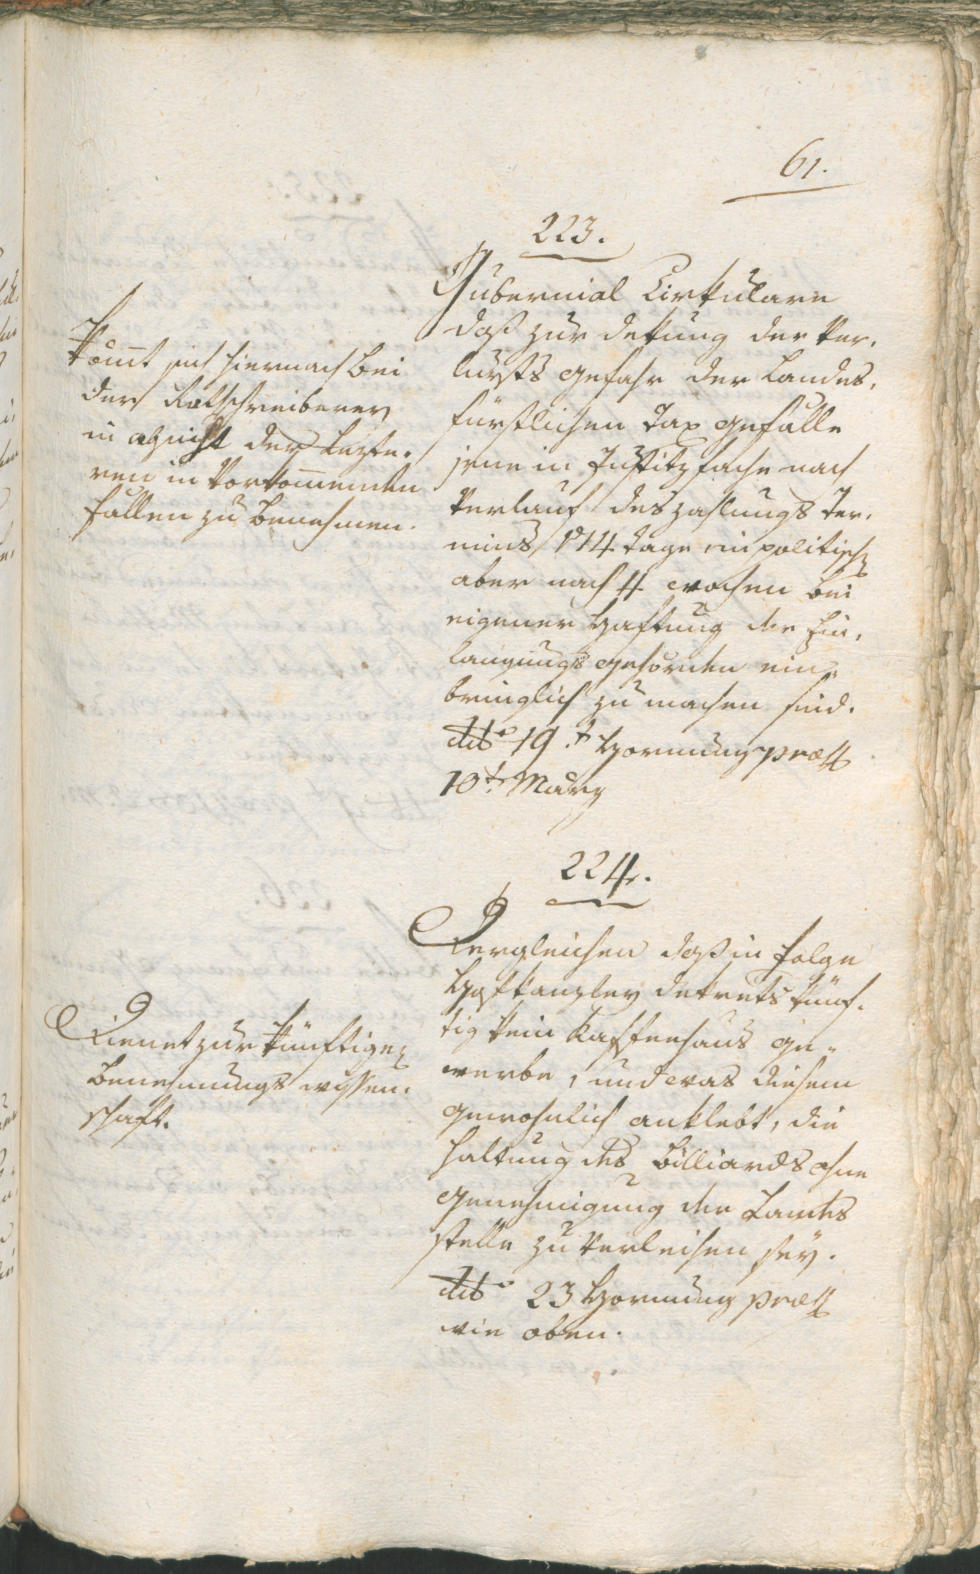 61.
223.
Gubernial Cirkulare
daß zur dekung der Ver,
lursts gefahr der Landes,
fürstlichen Tax gefälle
jene in Justitzfache nach
Verlauf des zahlungs Ter,
mins 14 tage, in politisch
aber nach 4 wochen bei
eigener Haftung der Ein,
langungs gehörden ein=
bringlich zu machen sind.
ddto 19.t Hornung præs
10t. März
Kommt sich hiernach bei
der Ratschreiberey
in absicht der Lezte.
ren in Vorkommenden
fällen zu benehmen.
224.
Dergleichen daß in folge
Hofkanzley dekrets künf.
tig kein Kaffeehaus ge=
werbe, und was diesem
gewohnlich anklebt, die
haltung des Billiards ohne
genehmigung der Landes
stelle zu verleihen seÿ.
ddto 23 Hornung præs
wie oben.
Dienet zur künftigen
benehmungs wissen.
schaft.